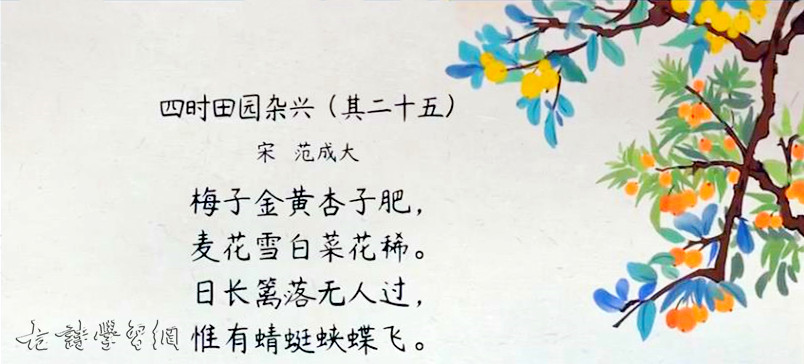 四时田园杂兴（其二十五）
宋 范成大
梅子金黄杏子肥，
麦花雪白菜花稀。
日长篱落无人过，
惟有蜻蜓蛱蝶飞。
古诗学习網